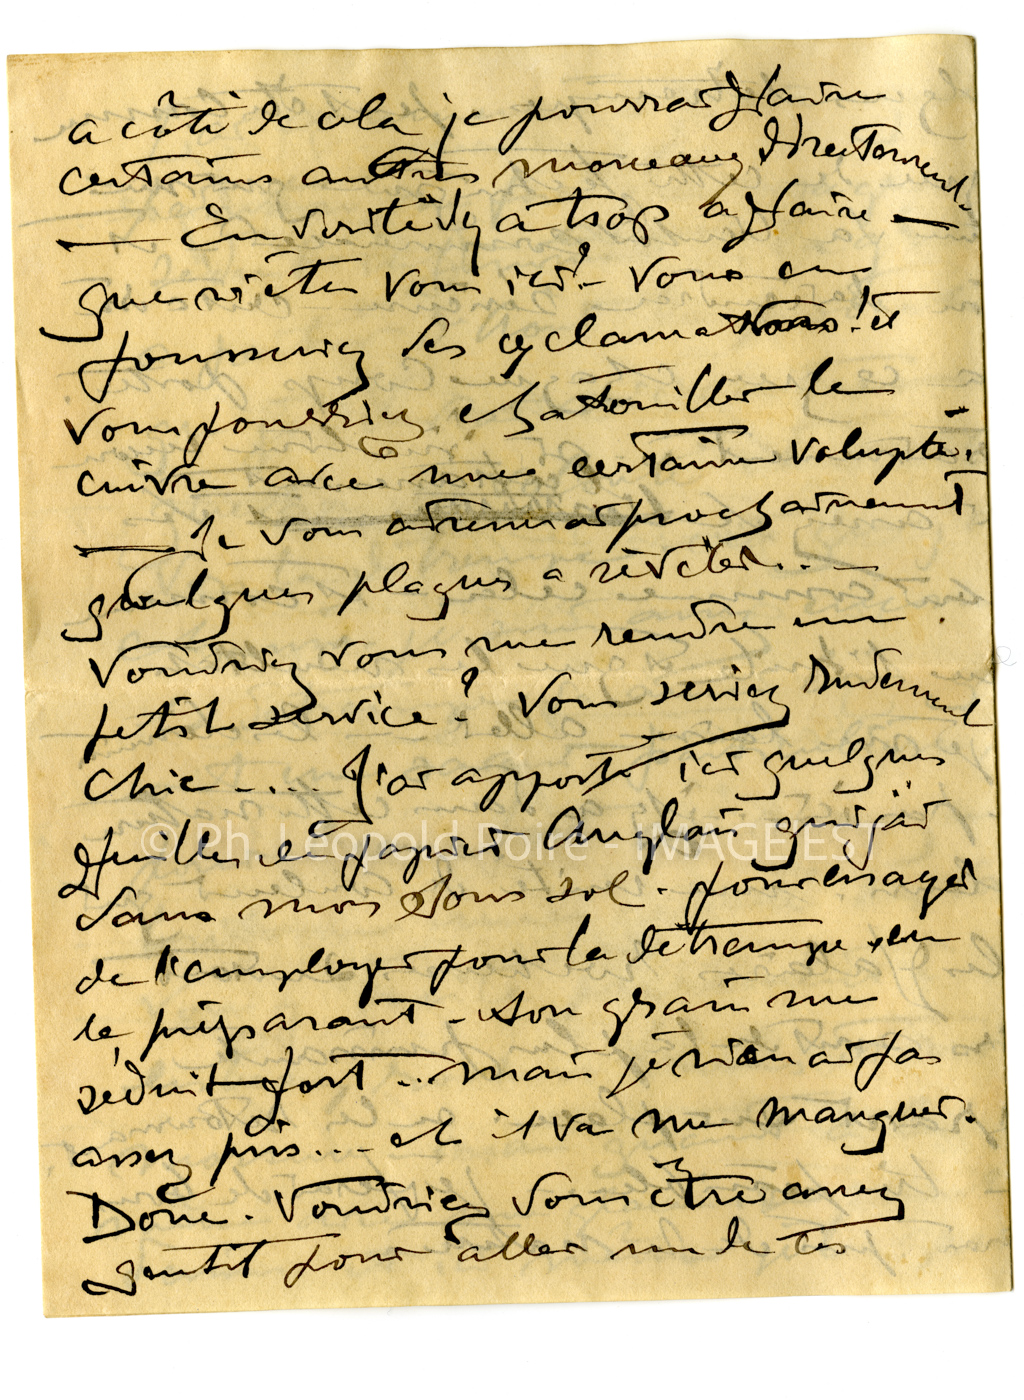 a côté de cela je pourrai faire
certains autres morceaux directement.
— En vérité il y a trop a faire —
que n'êtes vous ici? - Vous en
pousseriez des exclamations! et
vous pourriez chatouiller le
cuivre avec une certaine volupté.
— Je vous adresserai prochainement
quelques plaques a revêtir.. —
Voudriez vous me rendre un
petit service? Vous seriez rudement
chic -... J'ai apporté ici quelques
feuilles de papier Anglais que j'ai
dans mon sous sol. pour essayer
de l'employer pour la détrempe en
le préparant - son grain me
séduit fort ... mais je n'en ai pas
assez pris... et il va me manquer.
Donc. Voudriez vous être assez
gentil pour aller me de ces
© Ph. Léopold Poiré - IMAGE'EST